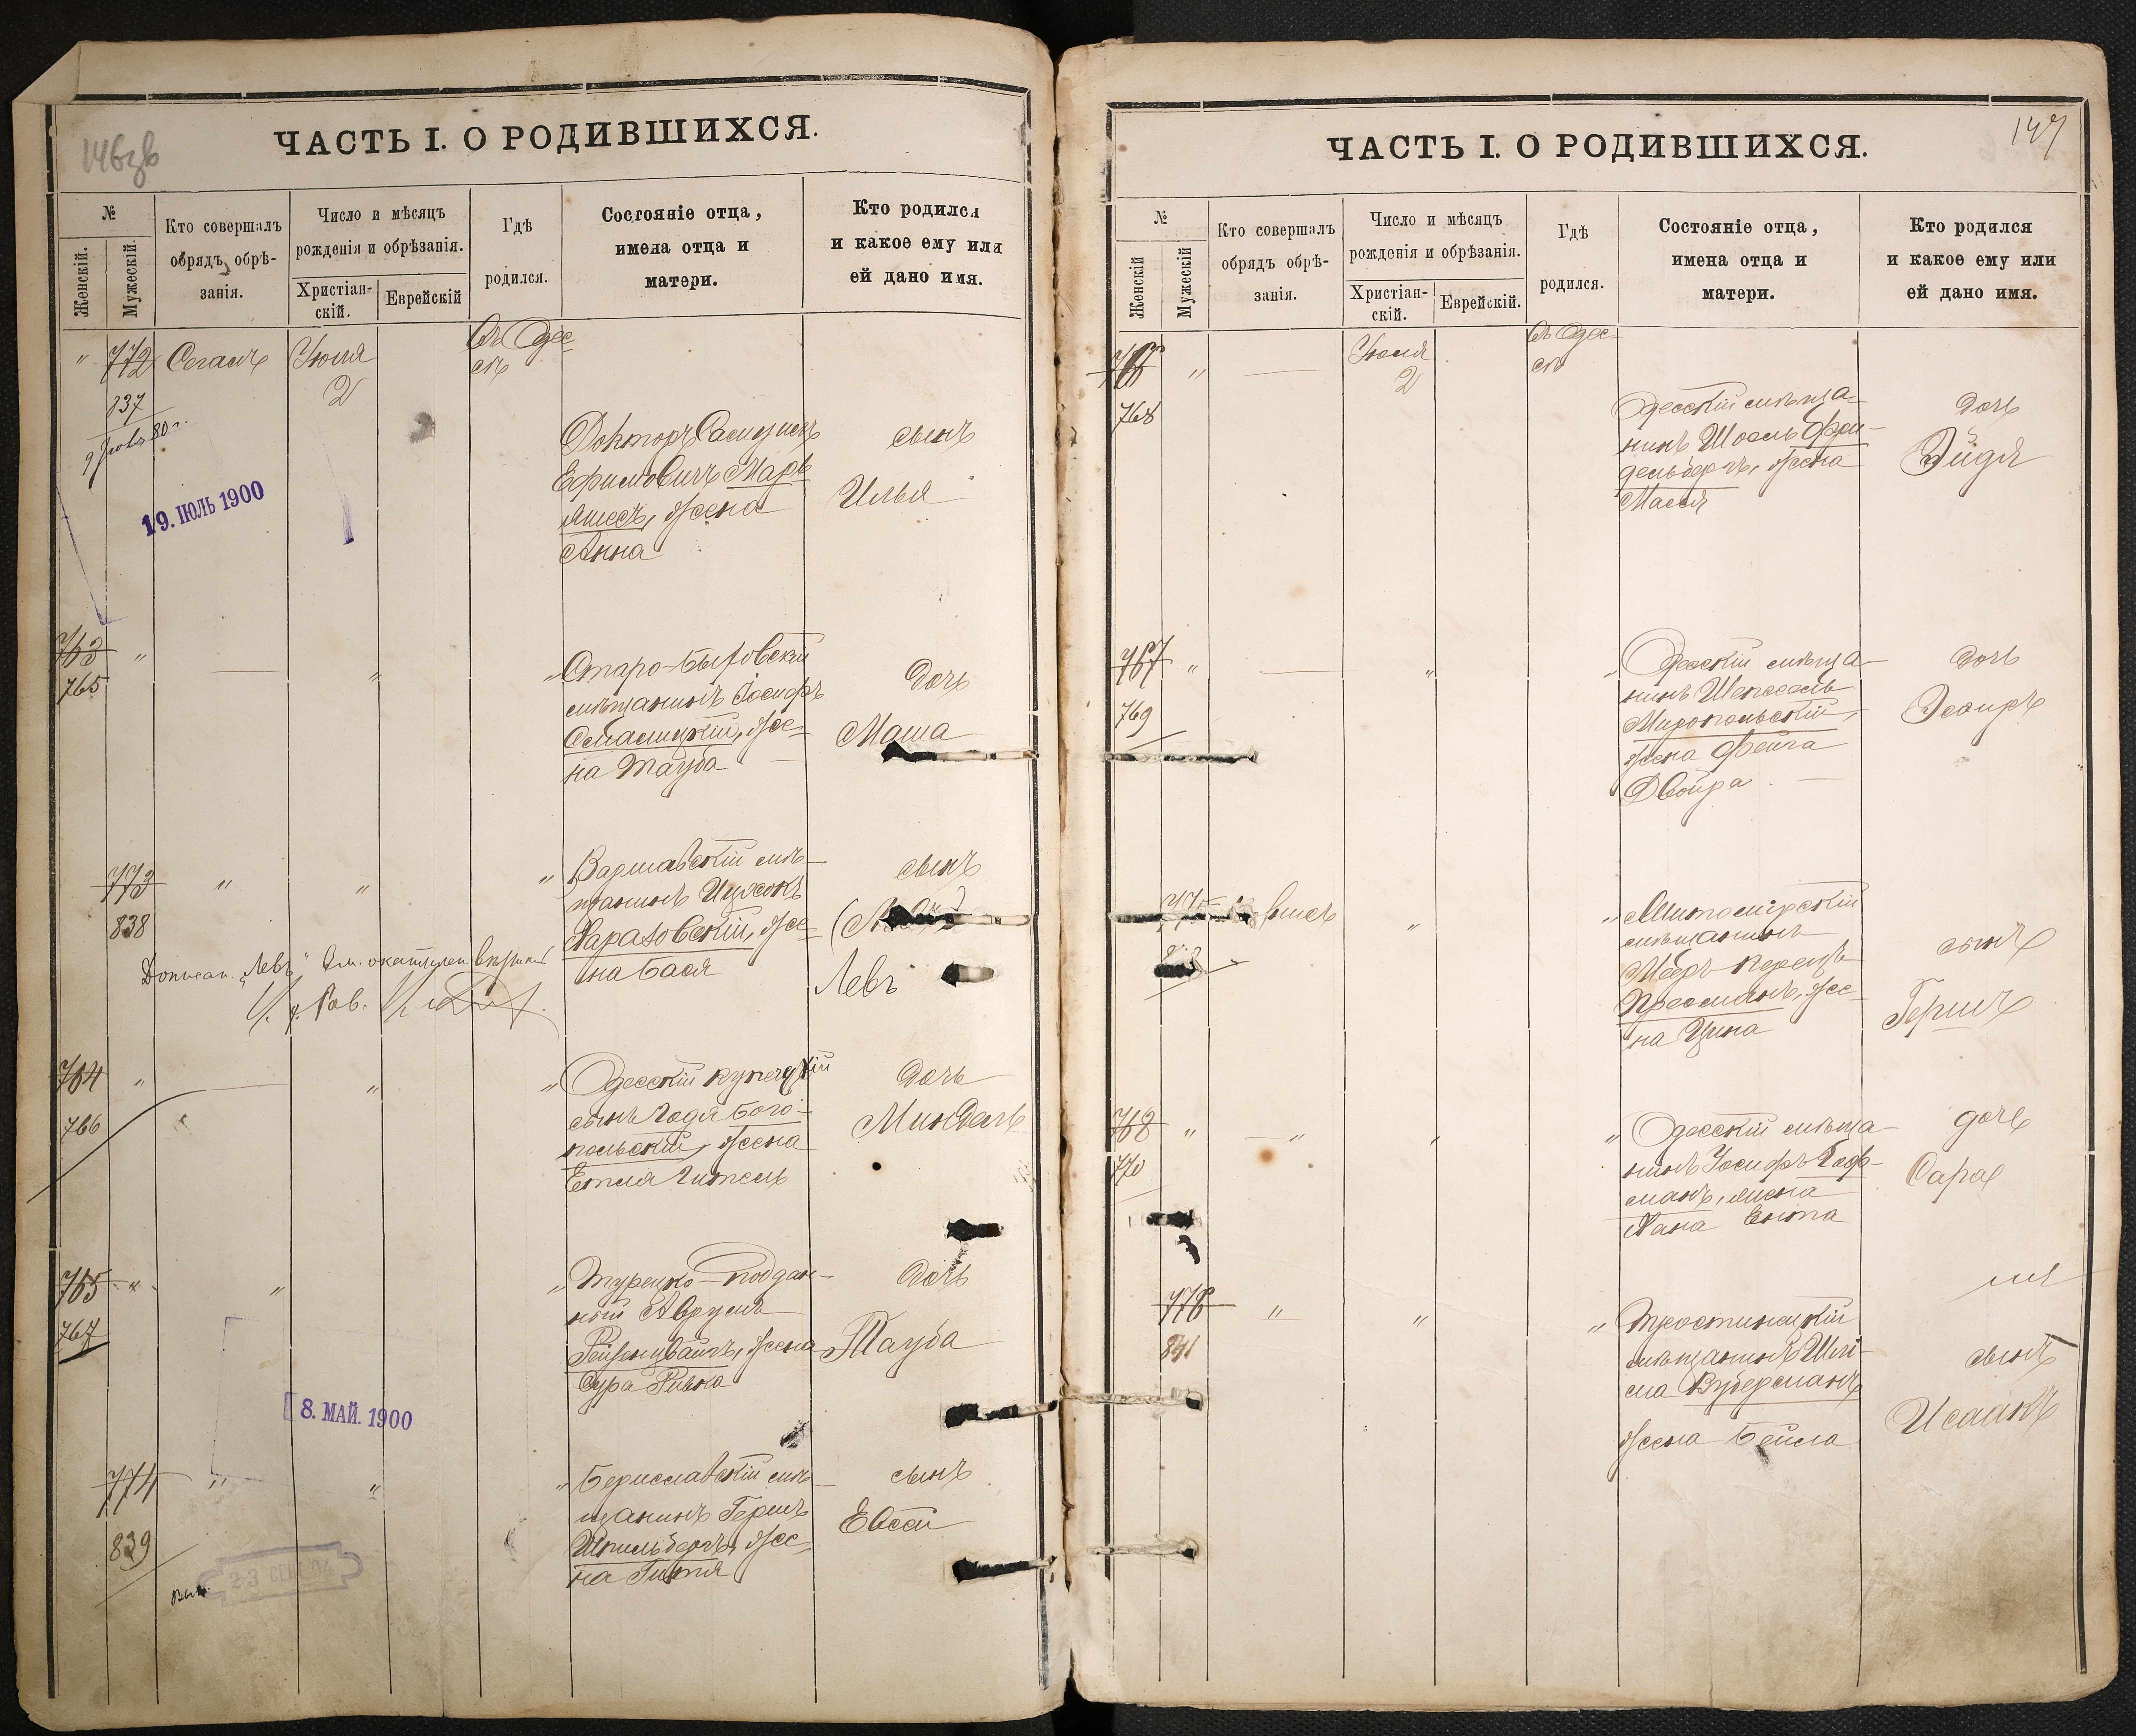 ЧАСТЬ I. О РОДИВШИХСЯ.
№
Женскій.
Мужескій.
Кто совершалъ
обрядъ обрѣ-
занія.
Число и мѣсяцъ
рожденія и обрѣзанія.
Христіан-
скій.
Еврейскій
Гдѣ
родился.
Состояніе отца,
имена отца и
матери.
Кто родился
и какое ему или
ей дано имя.
" 772 Сегалъ Іюля 2 въ Одес-
сѣ
837
19. ІЮЛЬ 1900
Докторъ
Ефимовичъ Марь-
яшесъ, жена
Анна
сынъ
Илья
763 " — " "
765
Старо-Быховскій
мѣщанинъ Іосифъ
жe-
на Тауба
дочь
Маша
773 " " "
838
Варшавскій мѣ-
щанинъ Ицхокъ
же-
на Бася
сынъ
Левъ
764 " — " "
766
Одесскій купечскій
сынъ Годя Бого-
польскій, жена
Етля Гитель
дочь
Миндель
765 " " "
767
Турецко-поддан-
ный Аврумъ
Рейзенцвайгъ, жена
Сура Ривка
дочь
Тауба
8. МАЙ. 1900
774 " " "
839
Бериславскій мѣ-
щанинъ Гершъ
Шпильбергъ, же-
на Гитля
сынъ
Евсей
147
ЧАСТЬ I. О РОДИВШИХСЯ.
№
Женскій
Мужескій
Кто совершалъ
обрядъ обрѣ-
занія.
Число и мѣсяцъ
рожденія и обрѣзанія.
Христіан-
скій.
Еврейскій.
Гдѣ
родился.
Состояніе отца,
имена отца и
матери.
Кто родился
и какое ему или
ей дано имя.
766 " — Іюля 2 въ Одес-
сѣ
768
Одесскій мѣща-
нинъ Шоель Фри-
дельбергъ, жена
Масся
дочь
Эйдя
767 " — " "
769
Одесскій мѣща-
нинъ Шепсель
Миропольскій,
жена Фейга
Двойра
дочь
Эсфирь
" "
Житомірскій
мѣщанинъ
Мееръ Перецъ
Пресманъ, же-
на Цина
сынъ
Гершъ
768 " — " " "
770
Одесскій мѣща-
нинъ Іосифъ Гоф-
манъ, жена
Хана Ента
дочь
Сара
776 " " "
841
Тростинецкій
мѣщанинъ Шлі-
ма
жена Бейла
сынъ
Исаакъ